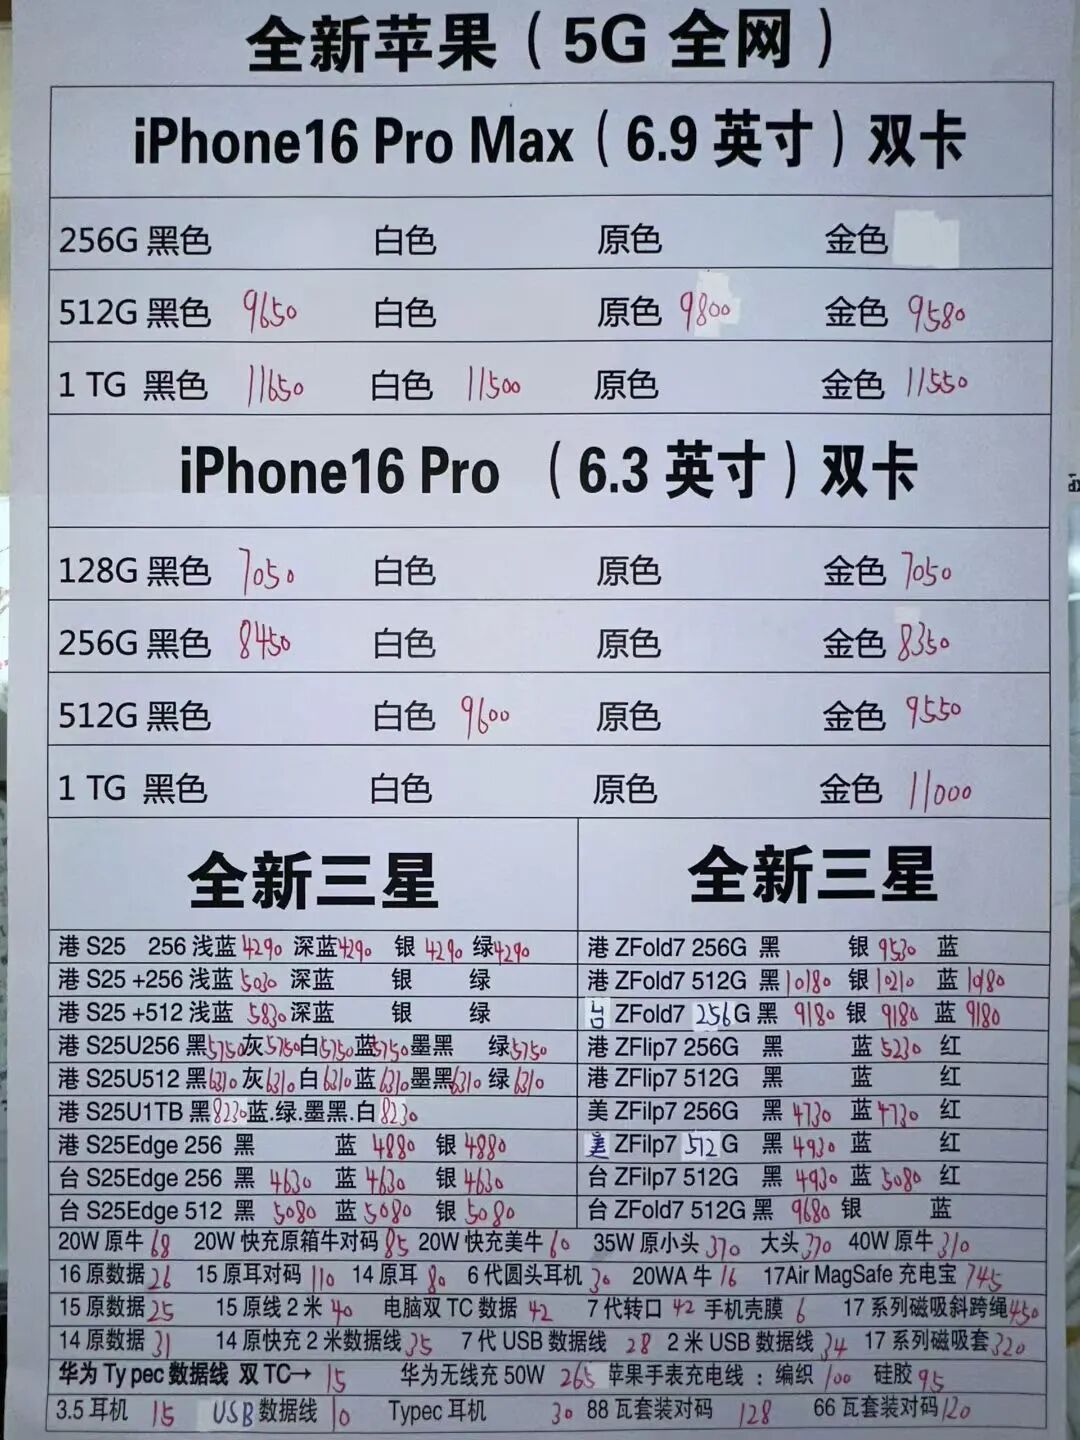 全新苹果（5G 全网）
iPhone16 Pro Max（6.9 英寸）双卡
256G 黑色 白色 原色 金色
512G 黑色 9650 白色 原色 9800 金色 9580
1 TG 黑色 11650 白色 11500 原色 金色 11550
iPhone16 Pro （6.3 英寸）双卡
128G 黑色 7050 白色 原色 金色 7050
256G 黑色 8450 白色 原色 金色 8350
512G 黑色 白色 9600 原色 金色 9550
1 TG 黑色 白色 原色 金色 11000
全新三星
港 S25 256 浅蓝 4290 深蓝 4290 银 4290 绿 4290
港 S25 +256 浅蓝 5030 深蓝 银 绿
港 S25 +512 浅蓝 5830 深蓝 银 绿
港 S25U256 黑 5750 灰 5750 白 5750 蓝 5750 墨黑 绿 5750
港 S25U512 黑 6310 灰 6310 白 6310 蓝 6310 墨黑 6310 绿 6310
港 S25U1TB 黑 8230 蓝.绿.墨黑.白 8230
港 S25Edge 256 黑 蓝 4880 银 4880
台 S25Edge 256 黑 4630 蓝 4630 银 4630
台 S25Edge 512 黑 5080 蓝 5080 银 5080
全新三星
港 ZFold7 256G 黑 银 9530 蓝
港 ZFold7 512G 黑 10180 银 10210 蓝 10180
台 ZFold7 256G 黑 9180 银 9180 蓝 9180
港 ZFlip7 256G 黑 蓝 5230 红
港 ZFlip7 512G 黑 蓝 红
美 ZFilp7 256G 黑 4730 蓝 4730 红
美 ZFilp7 512G 黑 4930 蓝 红
台 ZFilp7 512G 黑 4930 蓝 5080 红
台 ZFold7 512G 黑 9680 银 蓝
20W 原牛 68 20W 快充原箱牛对码 85 20W 快充美牛 60 35W 原小头 370 大头 370 40W 原牛 310
16 原数据 26 15 原耳对码 110 14 原耳 80 6 代圆头耳机 30 20WA 牛 16 17Air MagSafe 充电宝 745
15 原数据 25 15 原线 2 米 40 电脑双 TC 数据 42 7 代转口 42 手机壳膜 6 17 系列磁吸斜跨绳 450
14 原数据 31 14 原快充 2 米数据线 35 7 代 USB 数据线 28 2 米 USB 数据线 34 17 系列磁吸套 320
华为 Ty pec 数据线 双 TC→ 15 华为无线充 50W 265 苹果手表充电线：编织 100 硅胶 95
3.5 耳机 15 USB 数据线 10 Typec 耳机 30 88 瓦套装对码 128 66 瓦套装对码 120